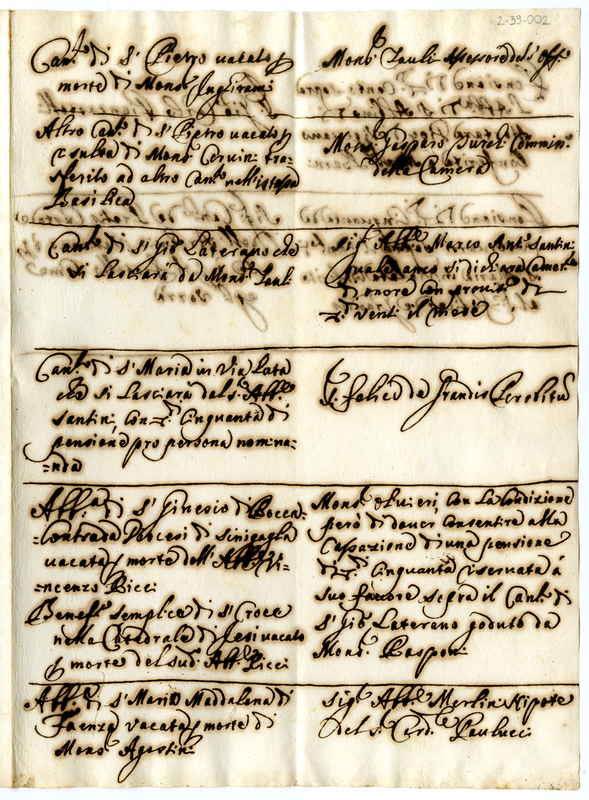 2-39-002
Can.to di S. Pietro vacato p
morte di Mons.r Inghirami
Mons.r Zauli Assessore del S. Off.o
Altro Can.to di S. Pietro vacato p
resulta di Mons.r Cervini tra=
sferito ad altro Can.to nell'istessa
Basilica
Mons.r Gasparo
della Camera
Can.to di S. Gio: Laterano che
si lasciarà da Mons.r Zauli
Sig.r Abb.e Marco Ant.o Santini
quale anco si dichiara Camer.e
d'onore con
venti il mese
Can.to di S. Maria in Via Lata
che si lasciarà dal S. Abb.e
Santini con Cinquanta di
pensione pro persona nomina=
=nda
S. Felice de Grandis
Abb.a di S. Ginesio di Rocca
=Contrada Diocesi di Sinigaglia
vacata p morte dell'Abb.e Vi=
=ncenzo Ricci
Benef.o semplice di S. Croce
nella Cattedrale di Jesi vacato
p morte del sud.o Abb.e Ricci
Mons.r Oliuieri con la Condizione
però di douer consentire alla
Cassazione di una pensione
di Cinquanta riseruata à
suo fauore sopra il Can.to di
S. Gio: Laterano goduto da
Mons.r Rasponi
Abb.a di S. Maria Maddalena di
Faenza vacata p morte di
Mons.r Agostini
Sig.r Abb.e Merlini Nipote
del S. Card.le Paulucci